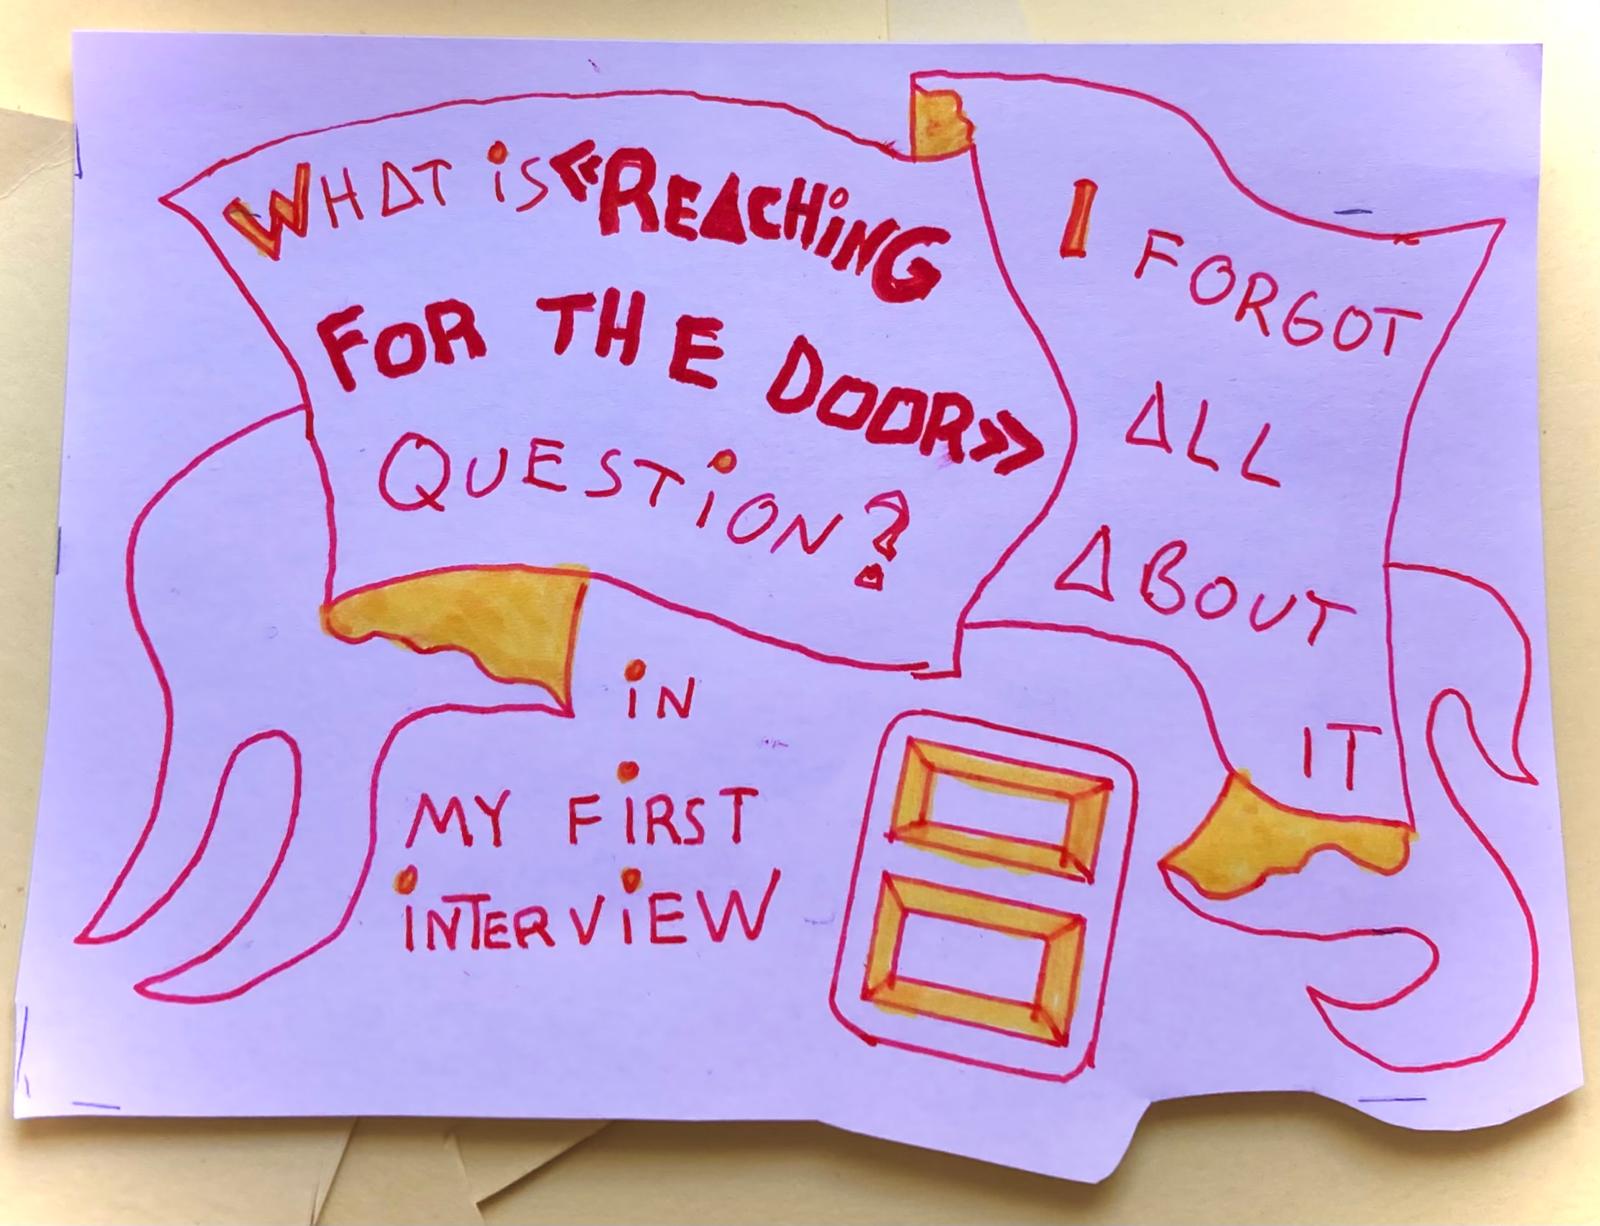 WHAT iS «REACHiNG
FOR THE DOOR»
QUESTiON?
I FORGOT
ALL
ABOUT
IT
iN
MY FiRST
iNTERViEW